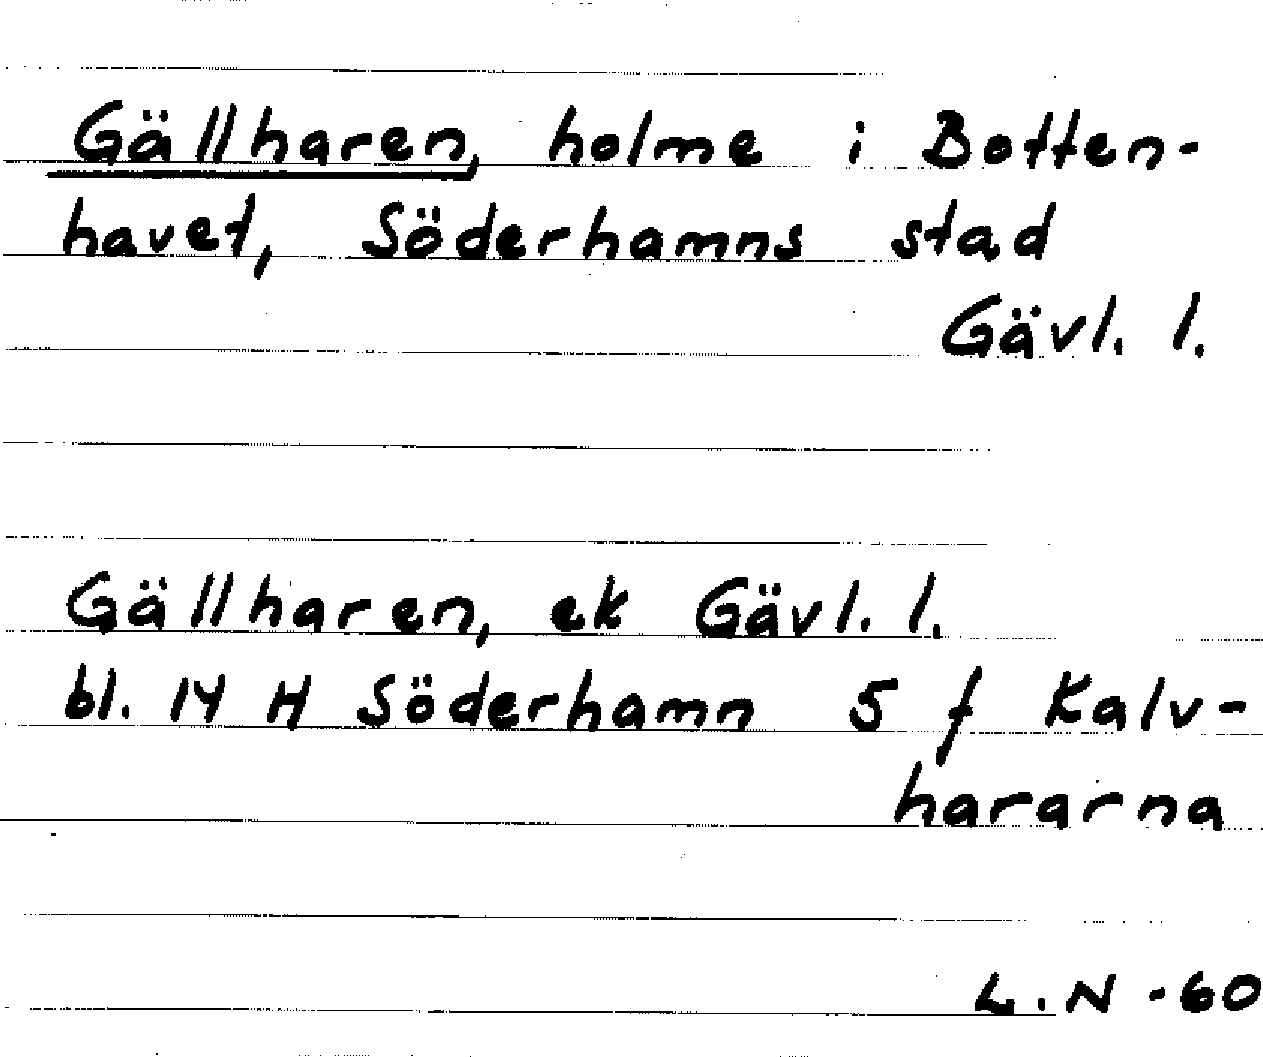 Gällharen, holme i Botten-
havet, Söderhamns stad
Gävl. l.
Gällharen, ek Gävl. l.
bl. 14 H Söderhamn 5 f Kalv-
hararna
L.N -60